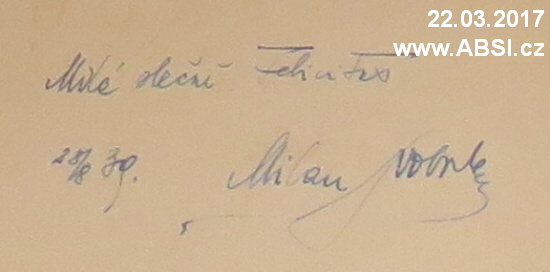 22.03.2017
www.ABSI.cz
Milé slečně Felicitas
39. Milan